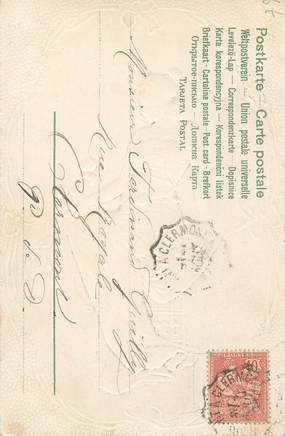 Postkarte - Carte postale
Weltpostverein - Union postale universelle
Levelező-Lap - Correspondenzkarte - Dopisnice
Karta korespondencyjna - Korespondenční lístek
Briefkaart - Cartolina postale - Post card - Brefkort
Открытое письмо Дописна Карта
TARJETA POSTAL
Monsieur Ferdinand
Rue Royale
Clermont
P. d. D.
CLERMONT
CLERMONT